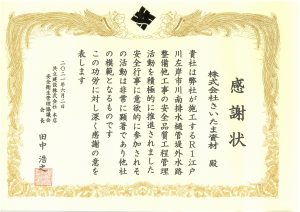 感謝状
株式会社さいたま資材 殿
貴社は弊社が施工するR1江戸
川左岸市川南排水樋管堤外水路
整備他工事の安全品質工程管理
活動を積極的に推進されました
安全行事に意欲的に参加されそ
の活動は非常に顕著であり他社
の模範となるものです
この功労に対し深く感謝の意を
表します
二〇二一年六月二日
共立建設株式会社 本店
安全衛生管理協議会
会長 田中 浩之